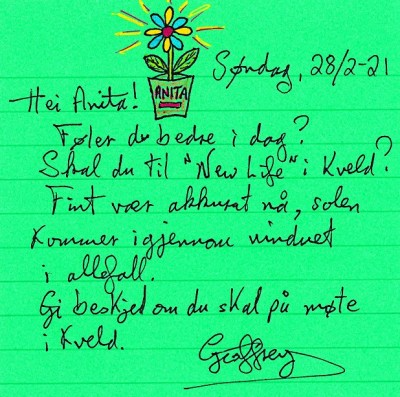 ANITA
Søndag, 28/2-21
Hei Anita!
Føler du bedre i dag?
Skal du til "New Life" i Kveld?
Fint vær akkurat nå, solen
Kommer igjennom vinduet
i allefall.
Gi beskjed om du skal på møte
i Kveld.
Geoffrey